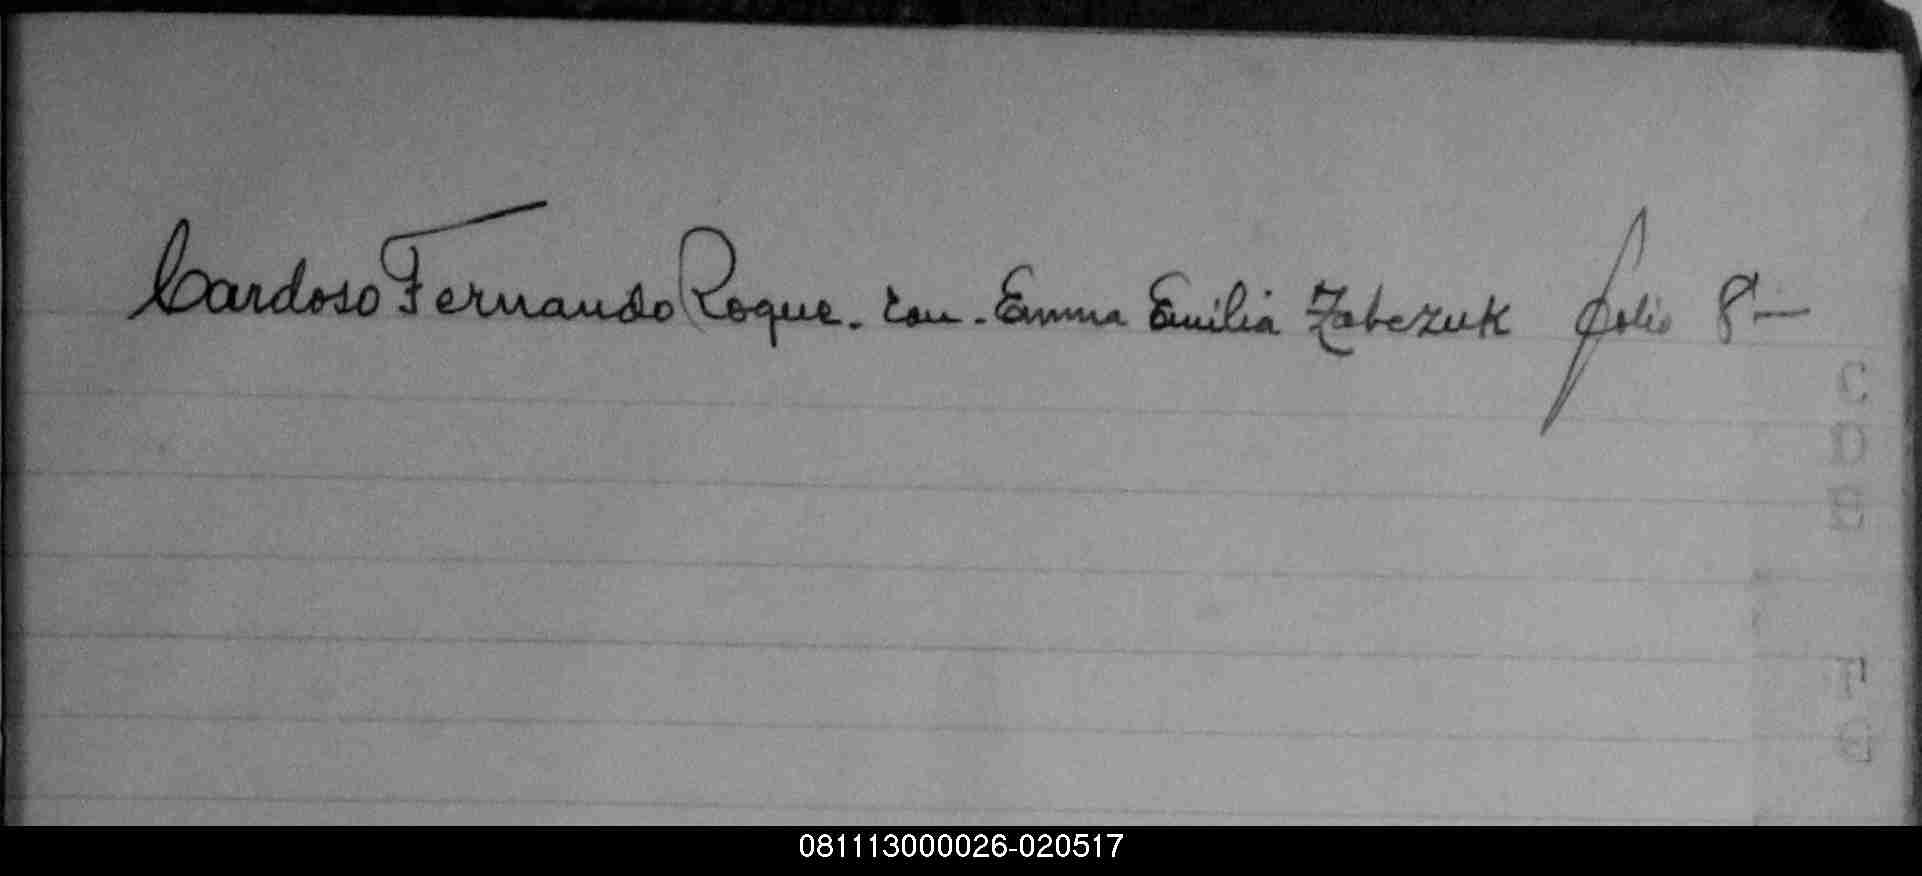 Cardoso Fernando Roque. con. Emma Emilia Zabczuk folio 8 —
C
D
E
F
G
081113000026-020517